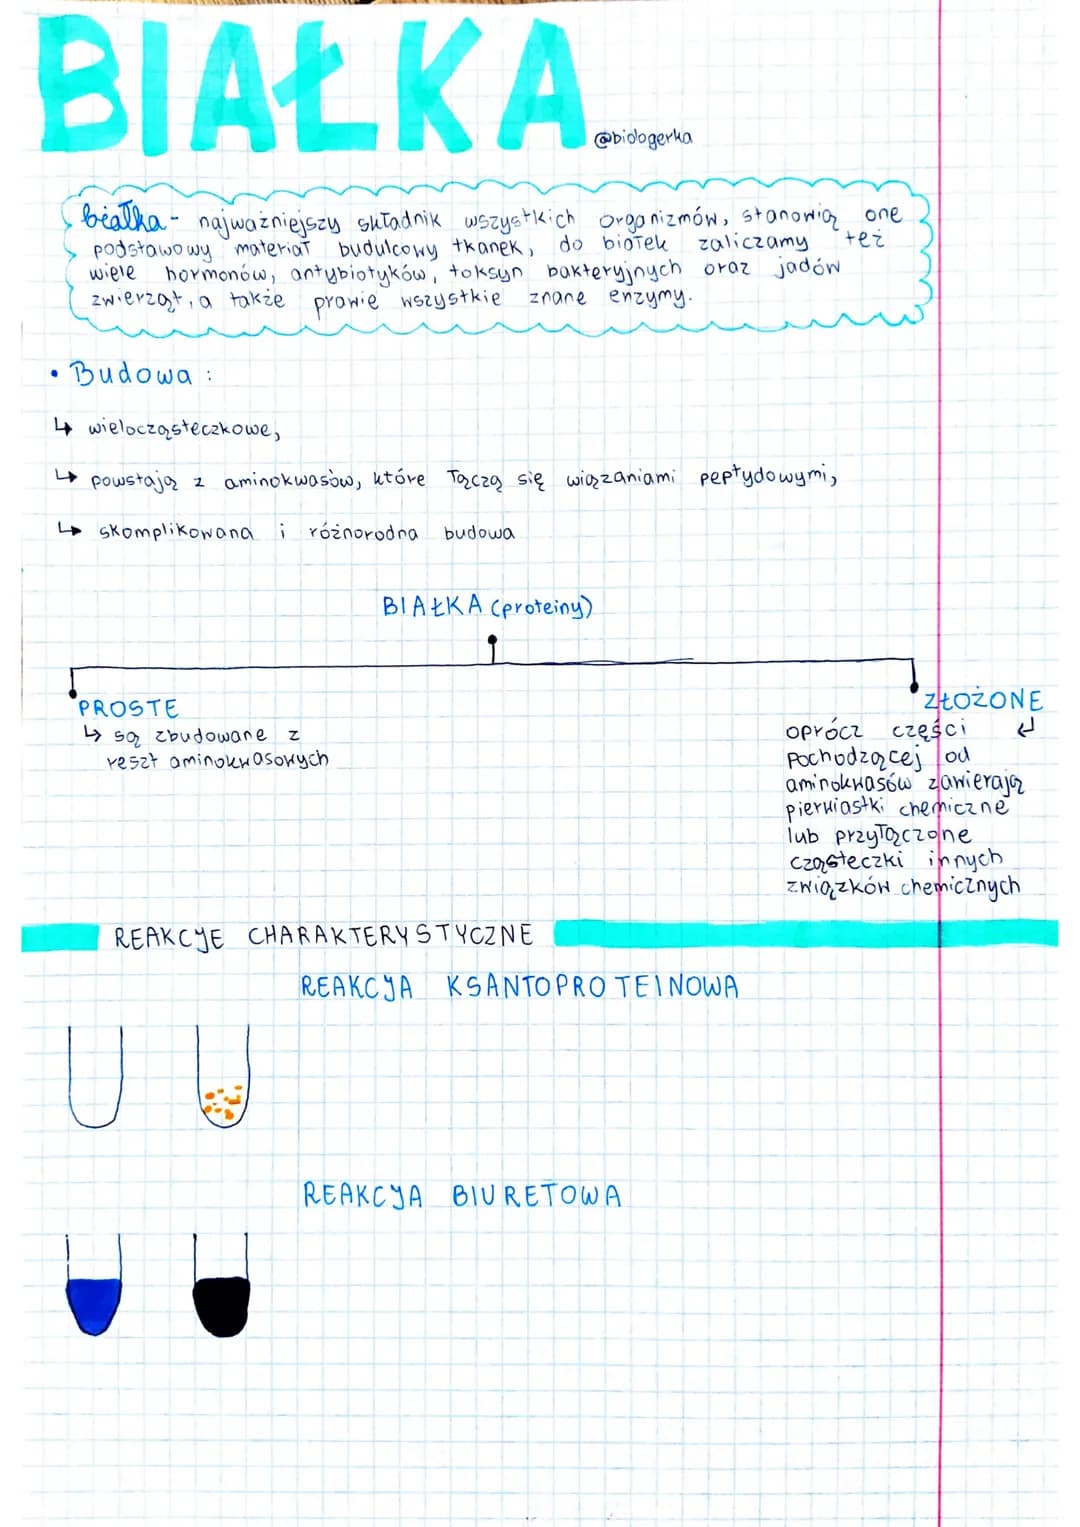 BIAŁKA
@biologerka
białka - najważniejszy składnik wszystkich organizmów, stanowią one
podstawowy materiał budulcowy tkanek, do białek zaliczamy też
wiele hormonów, antybiotyków, toksyn bakteryjnych oraz jadów
zwierząt, a także prawie wszystkie znane enzymy.
• Budowa:
↳ wielocząsteczkowe,
↳ powstają z aminokwasów, które łączą się wiązaniami peptydowymi,
↳ skomplikowana i różnorodna budowa
BIAŁKA (proteiny)
PROSTE
↳ są zbudowane z
reszt aminokwasowych
ZŁOŻONE
oprócz części ↲
pochodzącej od
aminokwasów zawierają
pierwiastki chemiczne
lub przyłączone
cząsteczki innych
związków chemicznych
REAKCJE CHARAKTERYSTYCZNE
REAKCJA KSANTOPROTEINOWA
REAKCJA BIURETOWA